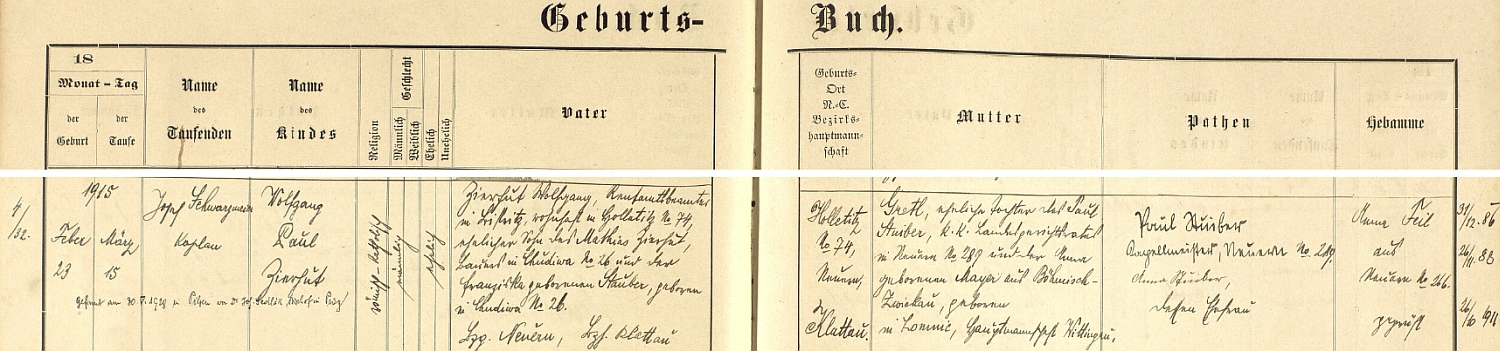 Geburts-
Buch.
18
Monat - Tag
der
Geburt
der
Taufe
Name
des
Taufenden
Name
des
Kindes
Religion
Geschlecht
Männlich
Weiblich
Ehelich
Unehelich
Vater
Geburts-
Ort
N.-C.
Bezirks-
hauptmann-
schaft
Mutter
Pathen
Hebamme
1915
Feber
23
März
15
Josef
Kaplan
Wolfgang
Paul
Zierhut
männlich
ehelich
Zierhut Wolfgang, Rentamtbeamter
in Bistritz, wohnhaft in Holletitz No 74,
ehelicher Sohn des Mathias Zierhut,
Bauers in Chudiwa No 26 und der
Franziska geborenen Stauber, geboren
in Chudiwa No 26.
Bzg. Neuern, Bzh. Klattau
Holletitz
No 74,
Neuern,
Klattau.
Gretl, eheliche Tochter des Paul
Stuiber, k. k. Landesgerichtsrates
in Neuern No 289 und der Anna
geborenen Mayer aus Böhmisch-
Zwickau, geboren
in Lomnic, Hauptmannschaft Wittingau.
Paul Stuiber
Neuern No. 289.
Anna Stuiber,
dessen Ehefrau
Anna Feil
aus
Neuern No 266.
geprüft
31/12. 86